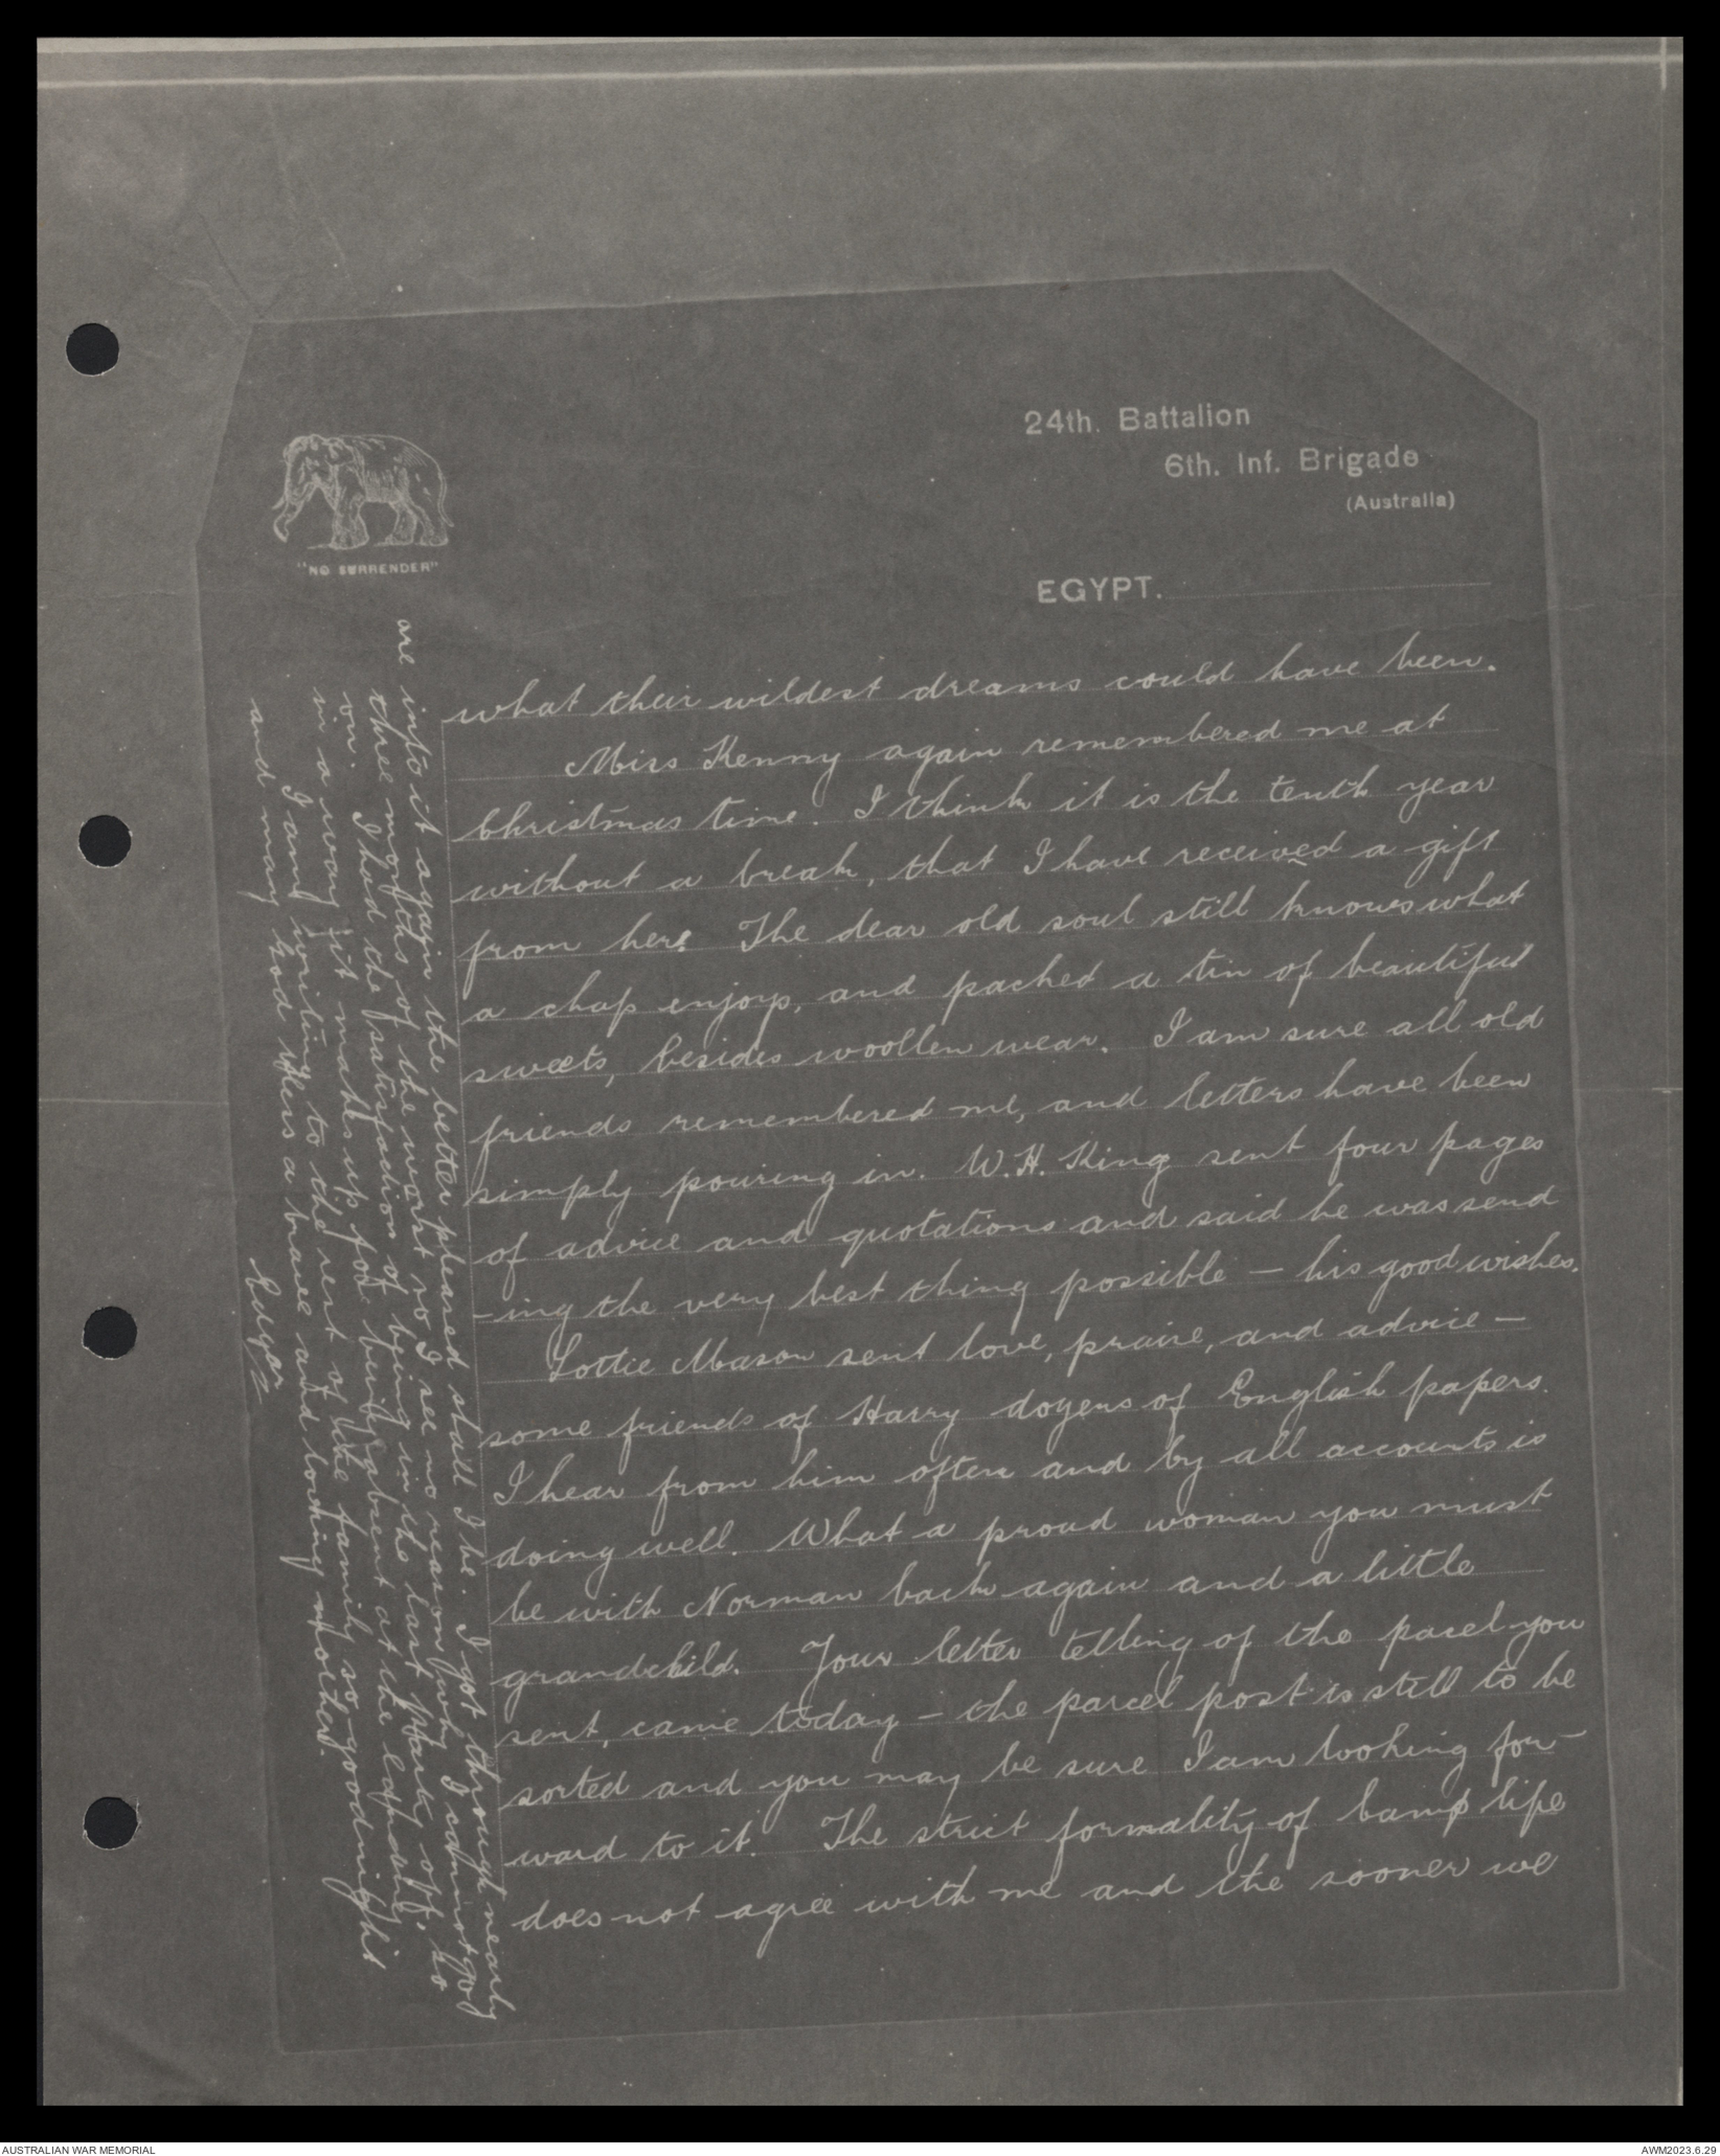 24th. Battalion
6th. Inf. Brigade
(Australia)
"NO SURRENDER"
EGYPT.
what their wildest dreams could have been.
Miss Kenny again remembered me at
Christmas time. I think it is the tenth year
without a break, that I have received a gift
from her. The dear old soul still knows what
a chap enjoys, and packed a tin of beautiful
sweets, besides woollen wear. I am sure all old
friends remembered me, and letters have been
simply pouring in. W.H. King sent four pages
of advice and quotations and said he was send
-ing the very best thing possible – his good wishes.
Lottie Mason sent love, praise, and advice –
some friends of Harry dozens of English papers.
I hear from him often and by all accounts is
doing well. What a proud woman you must
be with Norman back again and a little
grandchild. Your letter telling of the pacel you
sent, came today – the parcel post is still to be
sorted and you may be sure I am looking for-
ward to it. The strict formality of camp life
does not agree with me and the sooner we
are into it again the better pleased shall I be. I got through nearly
three months of the worst so I see no reason why I cannot go
on. I had the satisfaction of being in the last party off, so
in a way it makes up for being absent at the landing.
I am writing to the rest of the family so goodnight
and may God bless a brave and loving mother.
AUSTRALIAN WAR MEMORIAL
AWM2023.6.29